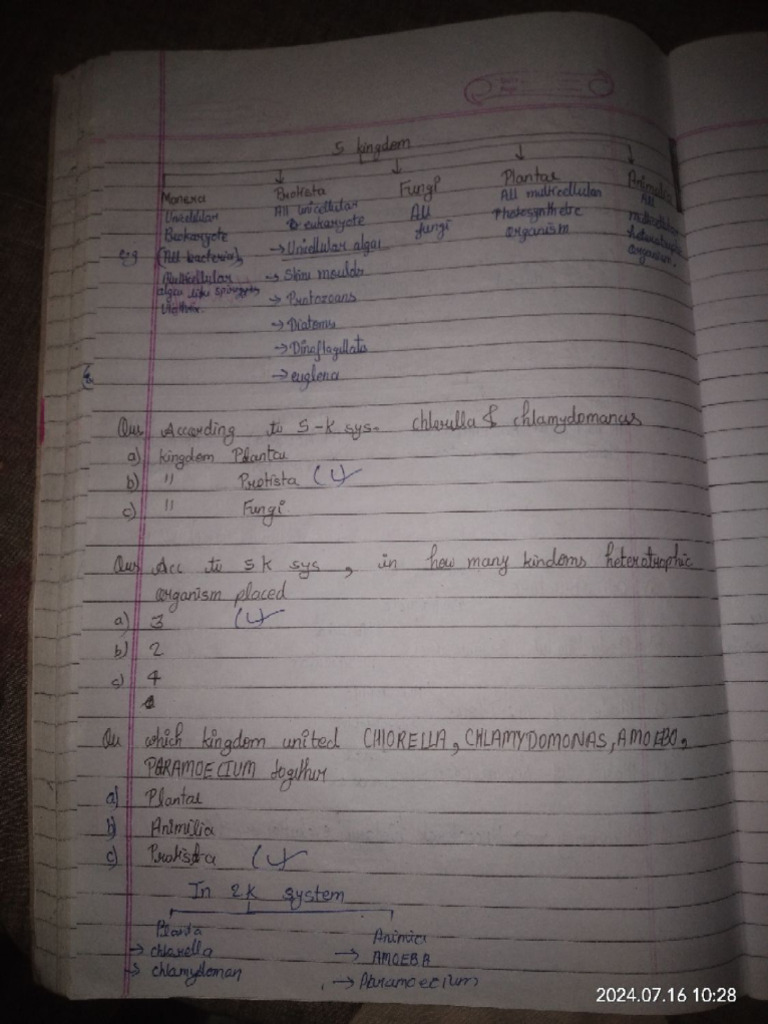 5 kingdom
Monera Protista Fungi Plantae Animalia
Unicellular All unicellular All All multicellular All
& eukaryote fungi Photosynthetic multicellular
(All bacteria) → Unicellular algae organism heterotrophic
e.g organism.
Multicellular → Slime moulds
algae like
Ulothrix → Protozoans
→ Diatoms
→ Dinoflagellats
→ euglena
Que According to 5-K sys. chlorella & chlamydomanas
a) kingdom Plantae
b) " Protista (✓)
c) " Fungi
Que Acc to 5K sys, in how many kindoms heterotrophic
organism placed
a) 3 (✓)
b) 2
c) 4
Qu which kingdom united CHLORELLA, CHLAMYDOMONAS, AMOEBO,
PARAMOECIUM together
a) Plantae
b) Animilia
c) Protista (✓)
In 2K system
Planta Animia
→ chlorella → AMOEBA
→ chlamydoman → Paramoecium
2024.07.16 10:28